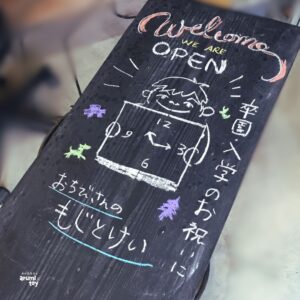 welcome
WE ARE
OPEN
卒園入学のお祝いに
12
9
3
6
おちびさんの
もじとけい
arumi toy